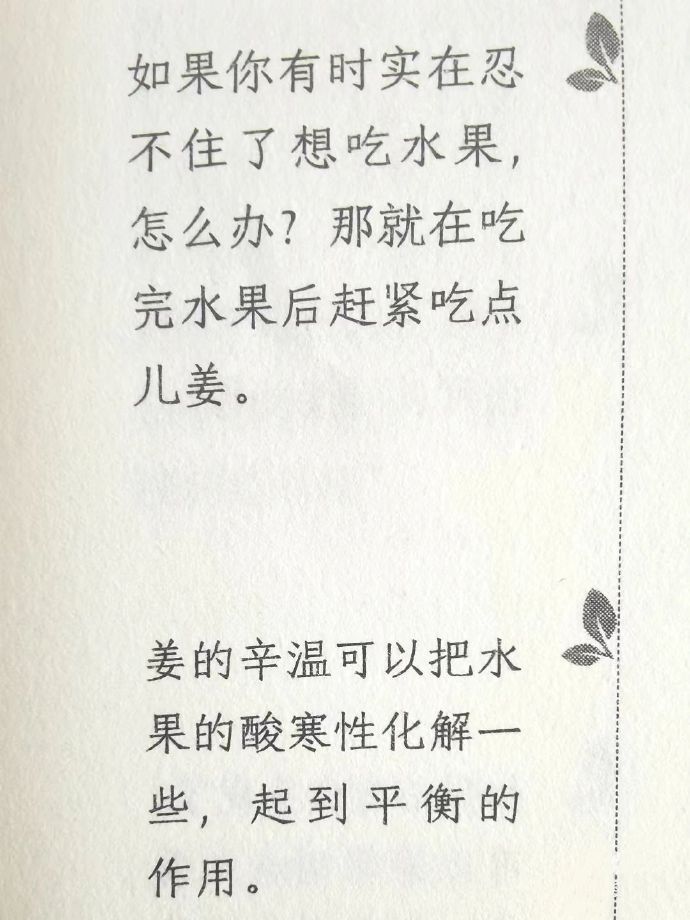 如果你有时实在忍
不住了想吃水果，
怎么办？那就在吃
完水果后赶紧吃点
儿姜。
姜的辛温可以把水
果的酸寒性化解一
些，起到平衡的
作用。